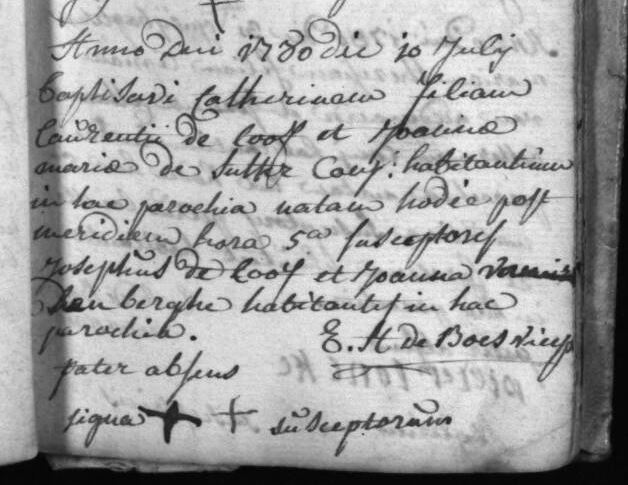 Anno dni 1780 die 10 Julij
baptisavi Catherinam filiam
Laurentii de Coof et Joannæ
mariæ de Sutter Conj: habitantium
in hac parochia natam hodie post
meridiem hora 5a susceptores
Josephus de Coof et Joanna
berghe habitantes in hac
parochia. E. H de Boes
pater absens
signa + + susceptorum